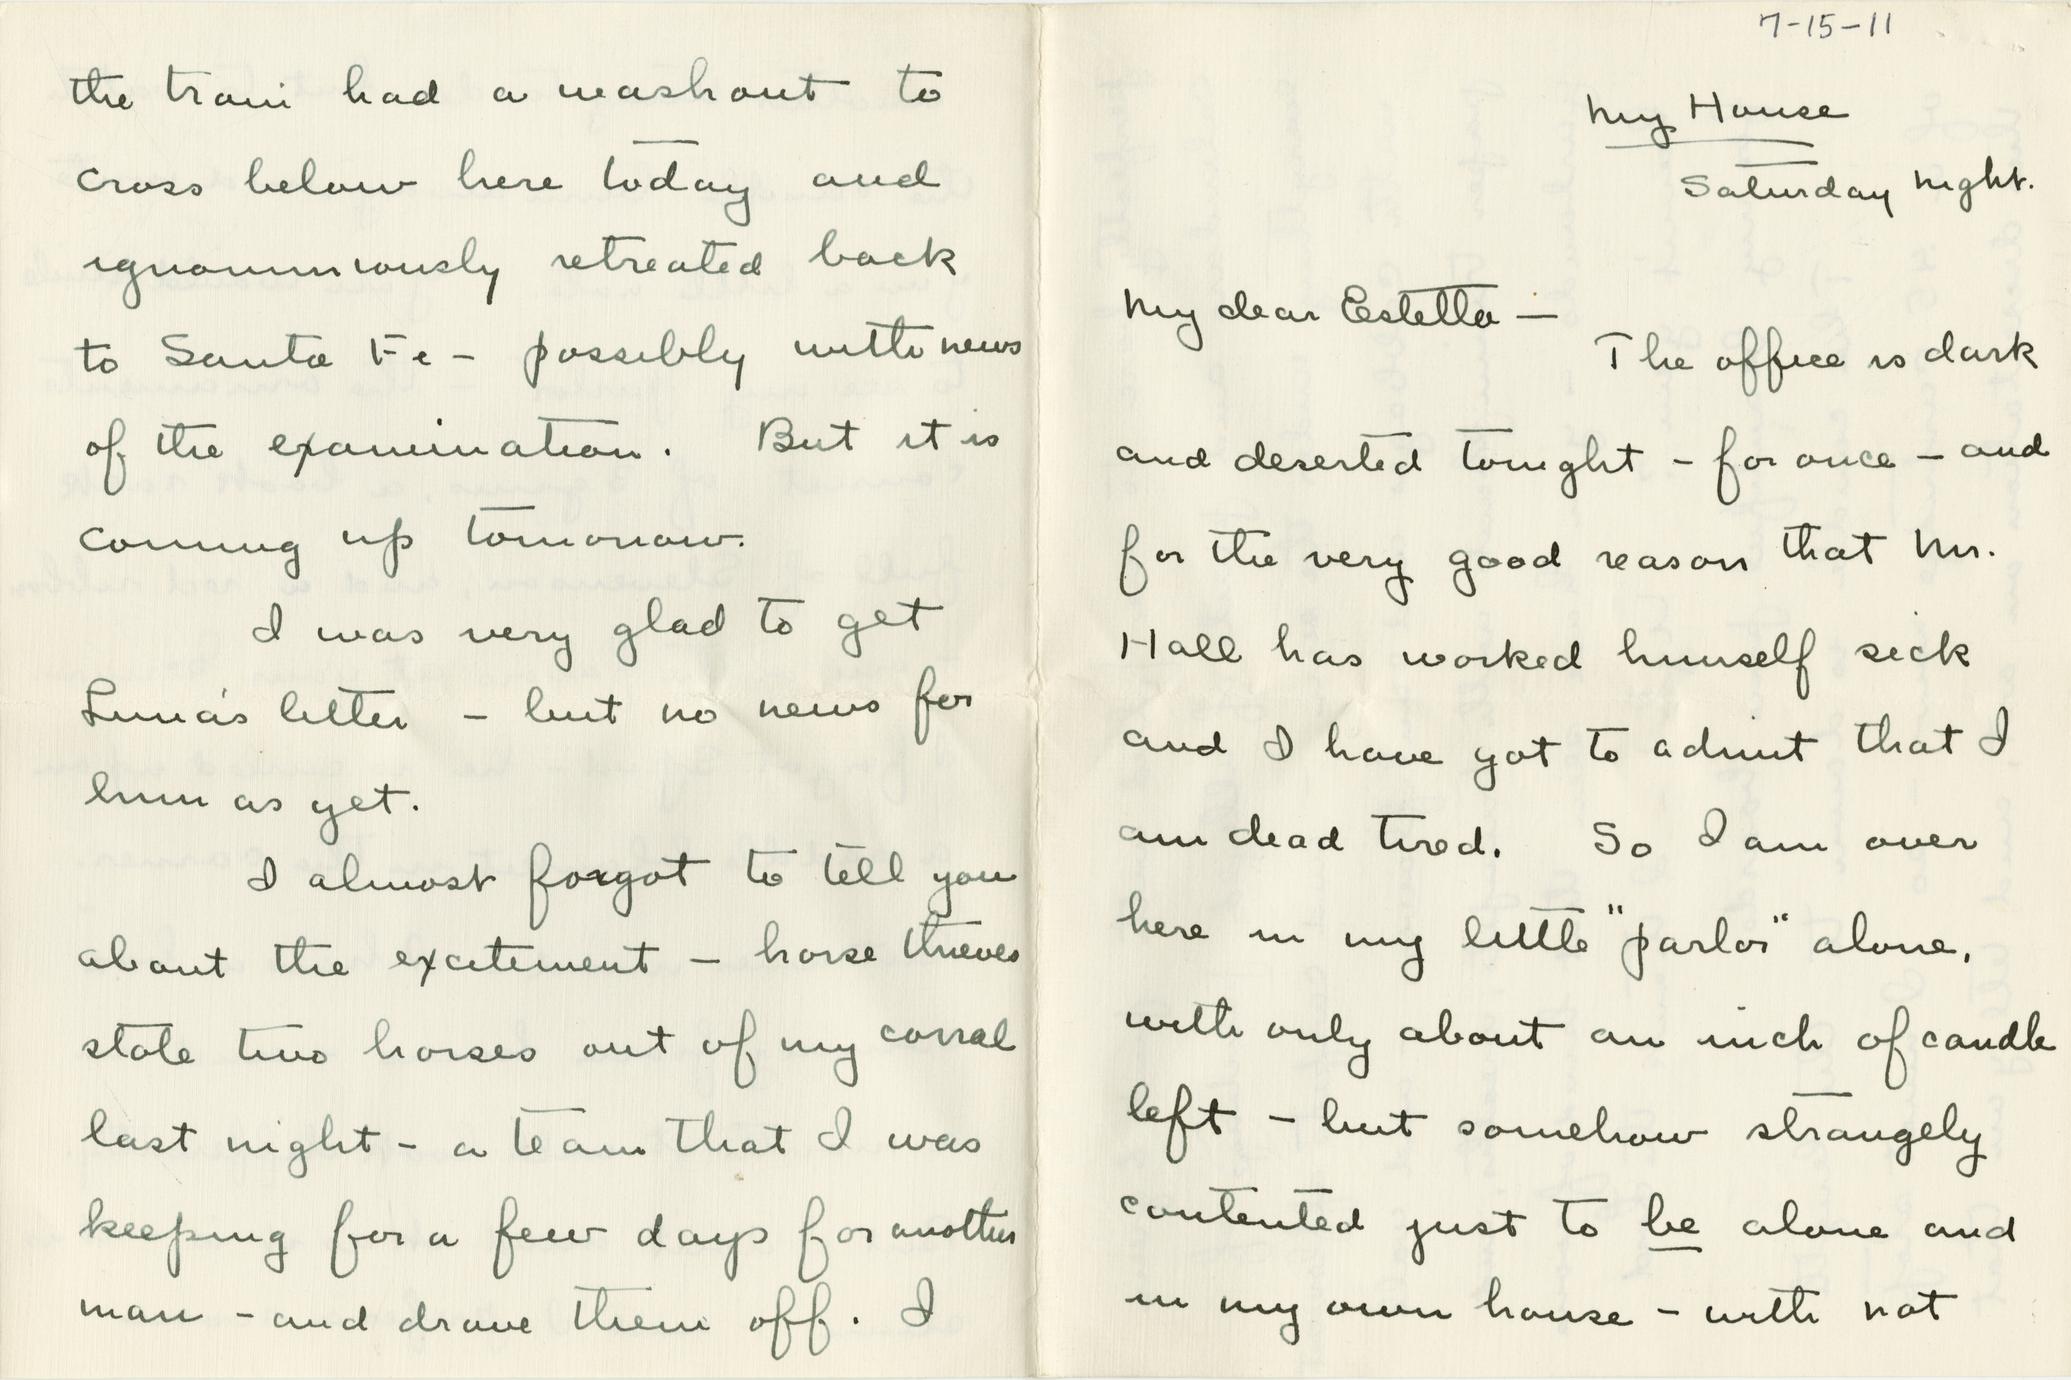 7-15-11
My House
Saturday night.
My dear Estella —
The office is dark
and deserted tonight - for once - and
for the very good reason that Mr.
Hall has worked himself sick
and I have got to admit that I
am dead tired. So I am over
here in my little "parlor" alone,
with only about an inch of candle
left - but somehow strangely
contented just to be alone and
in my own house - with not
the train had a washout to
cross below here today and
ignominiously retreated back
to Santa Fe - possibly with news
of the examination. But it is
coming up tomorrow.
I was very glad to get
Luna's letter - but no news for
him as yet.
I almost forgot to tell you
about the excitement - horse thieves
stole two horses out of my corral
last night - a team that I was
keeping for a few days for another
man - and drove them off. I